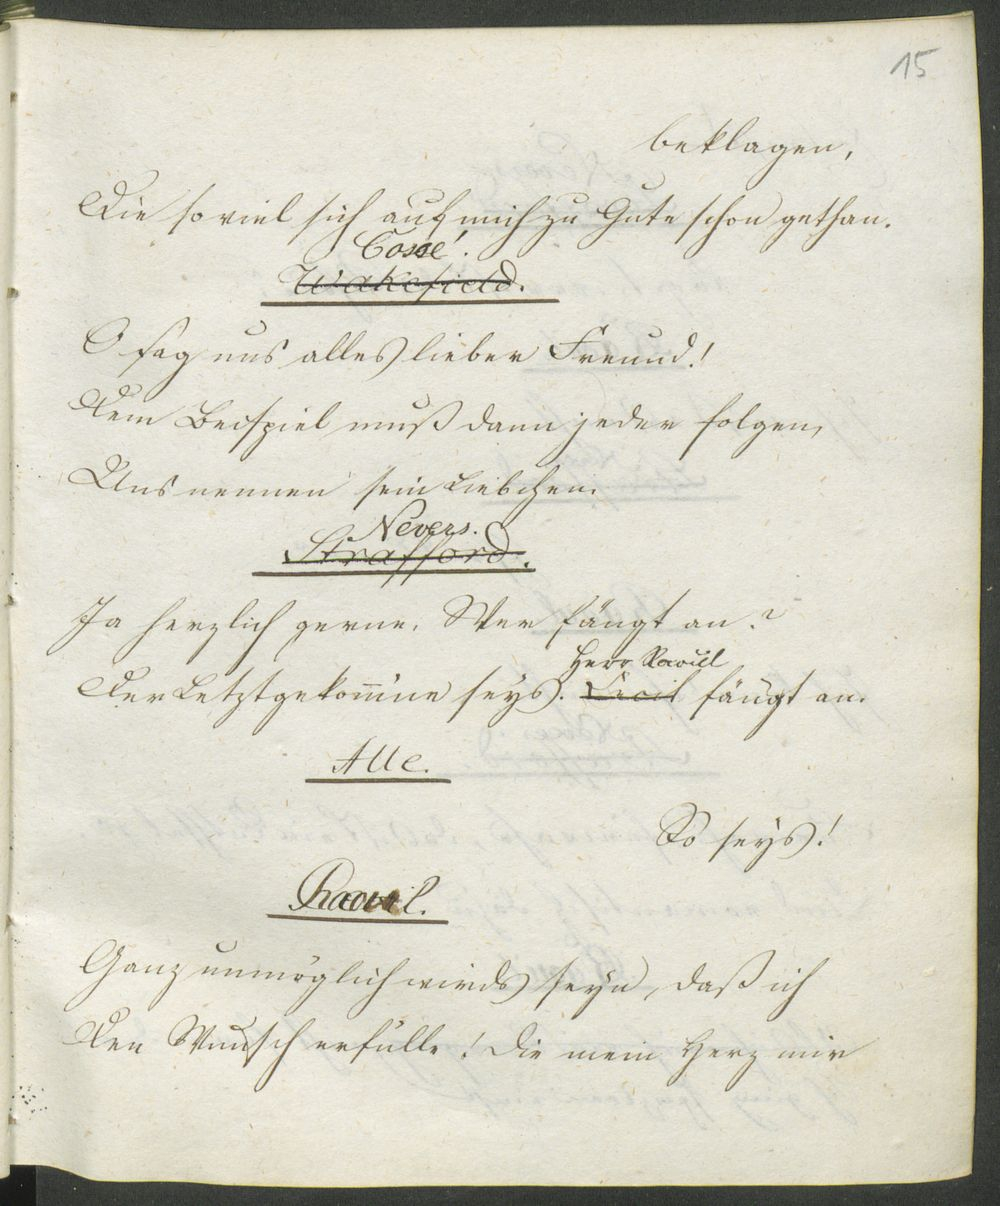 15
beklagen,
Die so viel sich auf mich zu Gute schon gethan.
Cossé.
Wakefield.
O sag uns alles lieber Freund!
Dem Beispiel muß dann jeder folgen,
Uns nennen sein Liebchen.
Nevers.
Strafford.
Ja herzlich gerne. Wer fängt an?
Herr Raoul
Der Letztgekom̄ene seys. Cecil fängt an.
Alle.
So seys!
Raoul.
Ganz unmöglich wirds seyn, daß ich
Den Wunsch erfülle! Die mein Herz mir